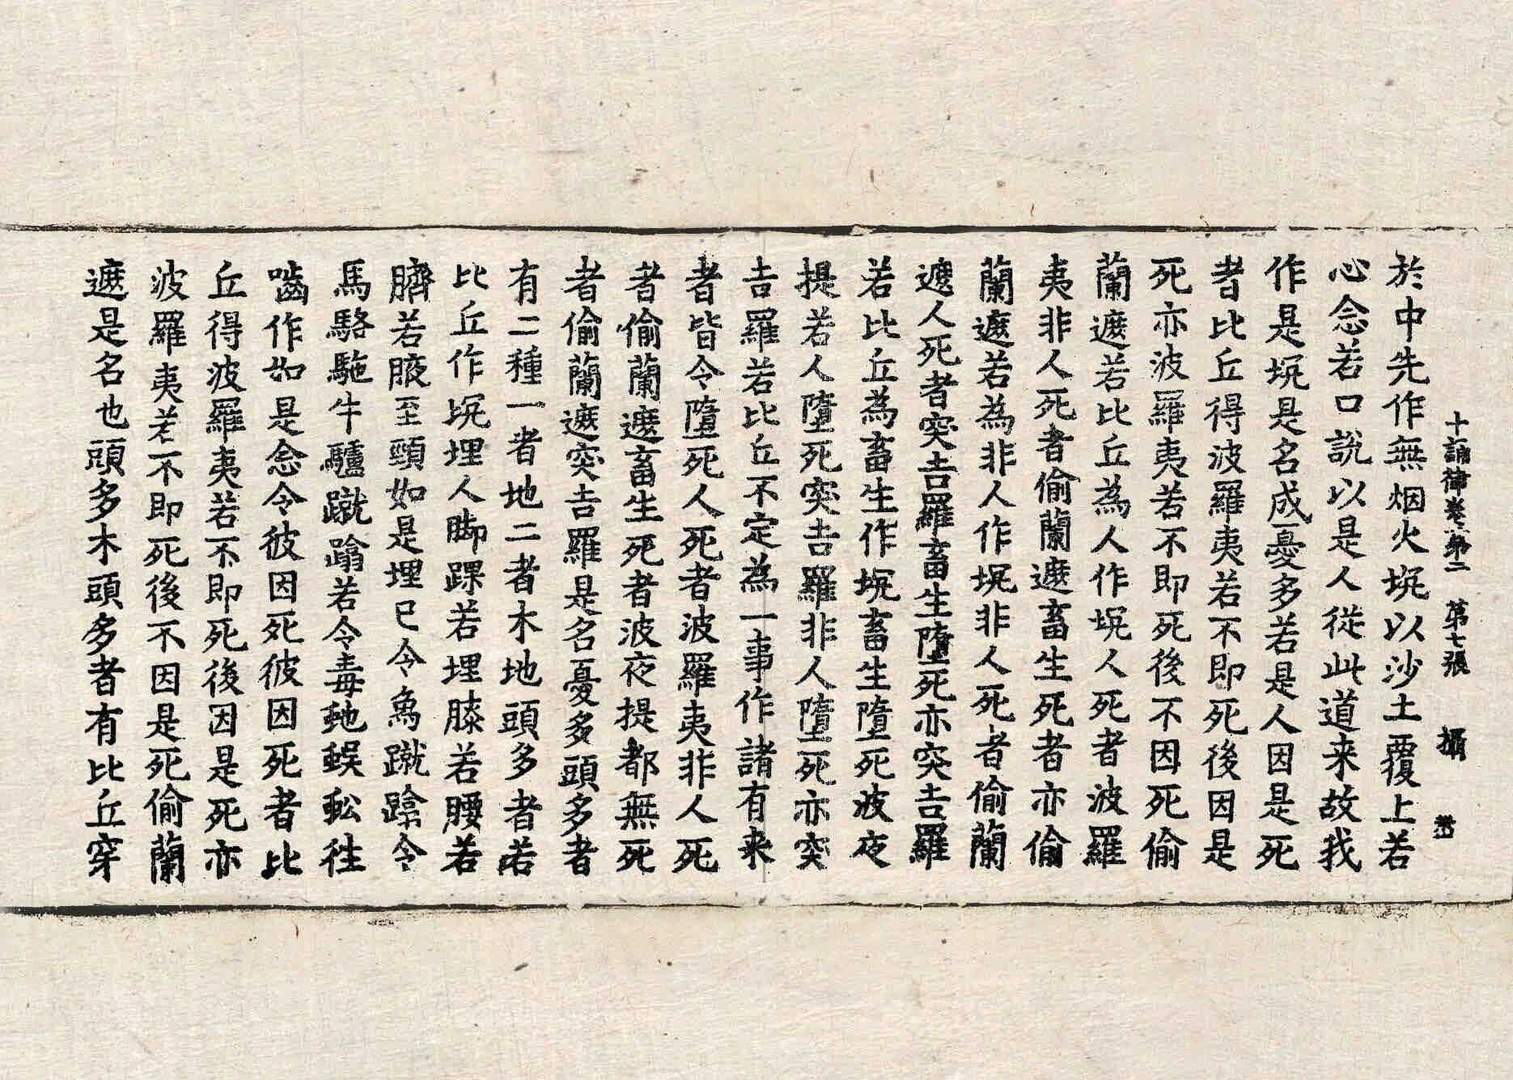 十誦律卷第二　第七張　攝
於中先作無烟火坑以沙土覆上若
心念若口說以是人從此道来故我
作是坑是名成憂多若是人因是死
者比丘得波羅夷若不即死後因是
死亦波羅夷若不即死後不因死偷
蘭遮若比丘為人作坑人死者波羅
夷非人死者偷蘭遮畜生死者亦偷
蘭遮若為非人作坑非人死者偷蘭
遮人死者突吉羅畜生墮死亦突吉羅
若比丘為畜生作坑畜生墮死波夜
提若人墮死突吉羅非人墮死亦突
吉羅若比丘不定為一事作諸有来
者皆令墮死人死者波羅夷非人死
者偷蘭遮畜生死者波夜提都無死
者偷蘭遮突吉羅是名憂多頭多者
有二種一者地二者木地頭多者若
比丘作坑埋人脚踝若埋膝若腰若
臍若腋至頸如是埋已令象蹴蹹令
馬駱駞牛驢蹴蹹若令毒虵蜈蚣徃
嚙作如是念令彼因死彼因死者比
丘得波羅夷若不即死後因是死亦
波羅夷若不即死後不因是死偷蘭
遮是名地頭多木頭多者有比丘穿